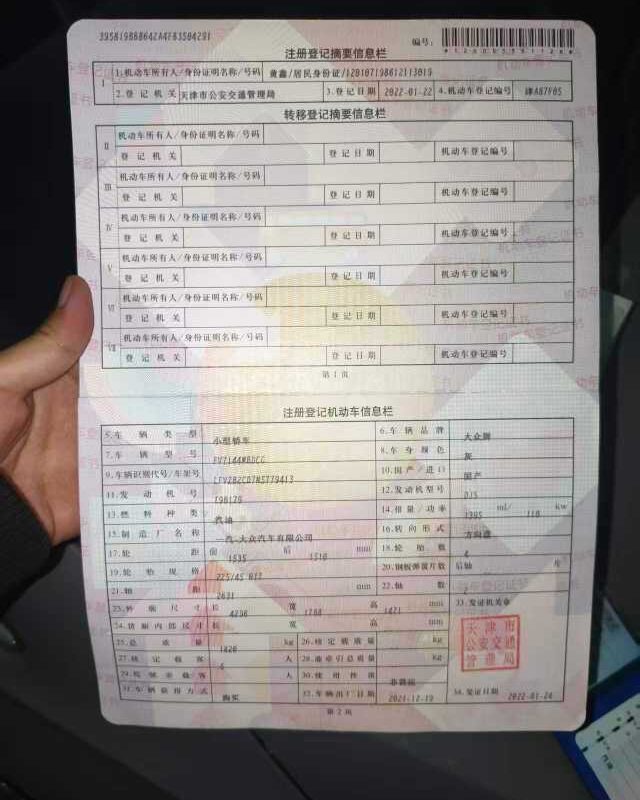 编号:
注册登记摘要信息栏
I 1.机动车所有人/身份证明名称/号码 黄鑫/居民身份证/120107198612113019
2.登记机关 天津市公安交通管理局 3.登记日期 2022-01-22 4.机动车登记编号 津A87F05
转移登记摘要信息栏
II 机动车所有人/身份证明名称/号码
登记机关 登记日期 机动车登记编号
III 机动车所有人/身份证明名称/号码
登记机关 登记日期 机动车登记编号
IV 机动车所有人/身份证明名称/号码
登记机关 登记日期 机动车登记编号
V 机动车所有人/身份证明名称/号码
登记机关 登记日期 机动车登记编号
VI 机动车所有人/身份证明名称/号码
登记机关 登记日期 机动车登记编号
VII 机动车所有人/身份证明名称/号码
登记机关 登记日期 机动车登记编号
第1页
注册登记机动车信息栏
5.车辆类型 小型轿车 6.车辆品牌 大众牌
7.车辆型号 8.车身颜色 灰
9.车辆识别代号/车架号 10.国产/进口 国产
11.发动机号 12.发动机型号
13.燃料种类 汽油 14.排量/功率 1395 ml/ 110 kw
15.制造厂名称 一汽-大众汽车有限公司 16.转向形式 方向盘
17.轮距 前 1535 后 1510 mm 18.轮胎数 4
19.轮胎规格 225/45 R17 20.钢板弹簧片数 后轴
21.轴距 2631 mm 22.轴数 2
23.外廓尺寸 长 4296 宽 高 1471 mm 33.发证机关章
24.货厢内部尺寸 长 宽 高 mm
25.总质量 kg 26.核定载质量 kg
27.核定载客 5 人 28.准牵引总质量 kg
人 30.使用性质 非营运
31.车辆获得方式 购买 32.车辆出厂日期 2021-12-19 34.发证日期 2022-01-24
天津市
公安交通
管理局
第2页